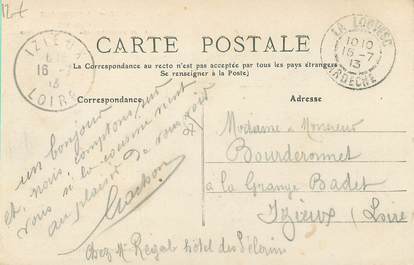 12€
CARTE POSTALE
La Correspondance au recto n'est pas acceptée par tous les pays étrangers
Se renseigner à la Poste)
Correspondance
Adresse
IZIEUX
16 -7
13
LOIRE
LA LOUVESC
10 10
16-7
13
ARDECHE
un bonjour
et nous comptons sur
vous si la cousine vient
au plaisir de vous voir
Madame & Monsieur
Bourderonnet
à la Grange Badet
Izieux (Loire)
Chez Mr Regal hôtel des Pélerins